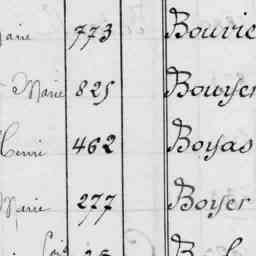 Marie 773 Bouvie
Marie 825 Bouyer
Henri 462 Boyas
Marie 277 Boyer